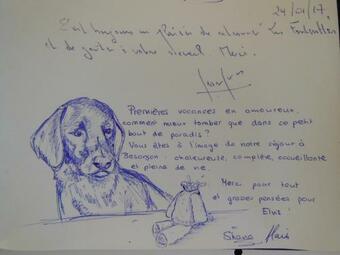 24/04/17
C'est toujours un plaisir de retrouver Les
et de goûter à votre accueil. Merci.
Premières vacances en amoureux,
comment mieux tomber que dans ce petit
bout de paradis ?
Vous êtes à l'image de notre séjour à
Besançon : chaleureuse, complète, accueillante
et pleine de vie.
Merci pour tout
et grosses pensées pour
Elvis !